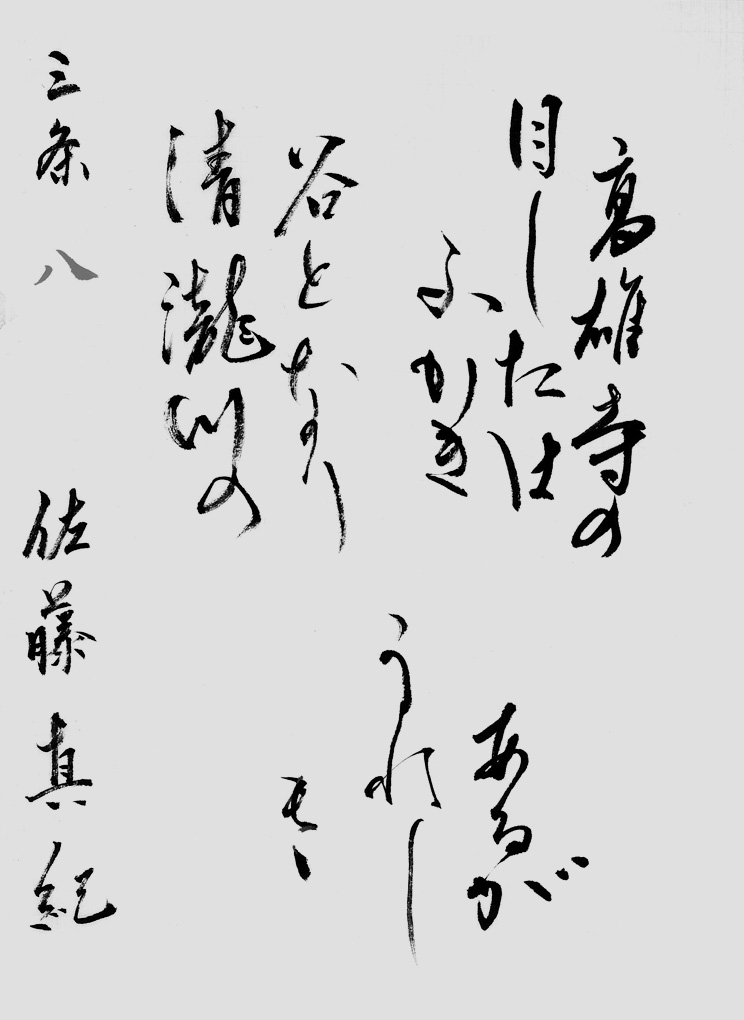 高雄寺の
目したは
ふかき
谷となり
清瀧川の
あるが
うれし
も
三条 八 佐藤真紀